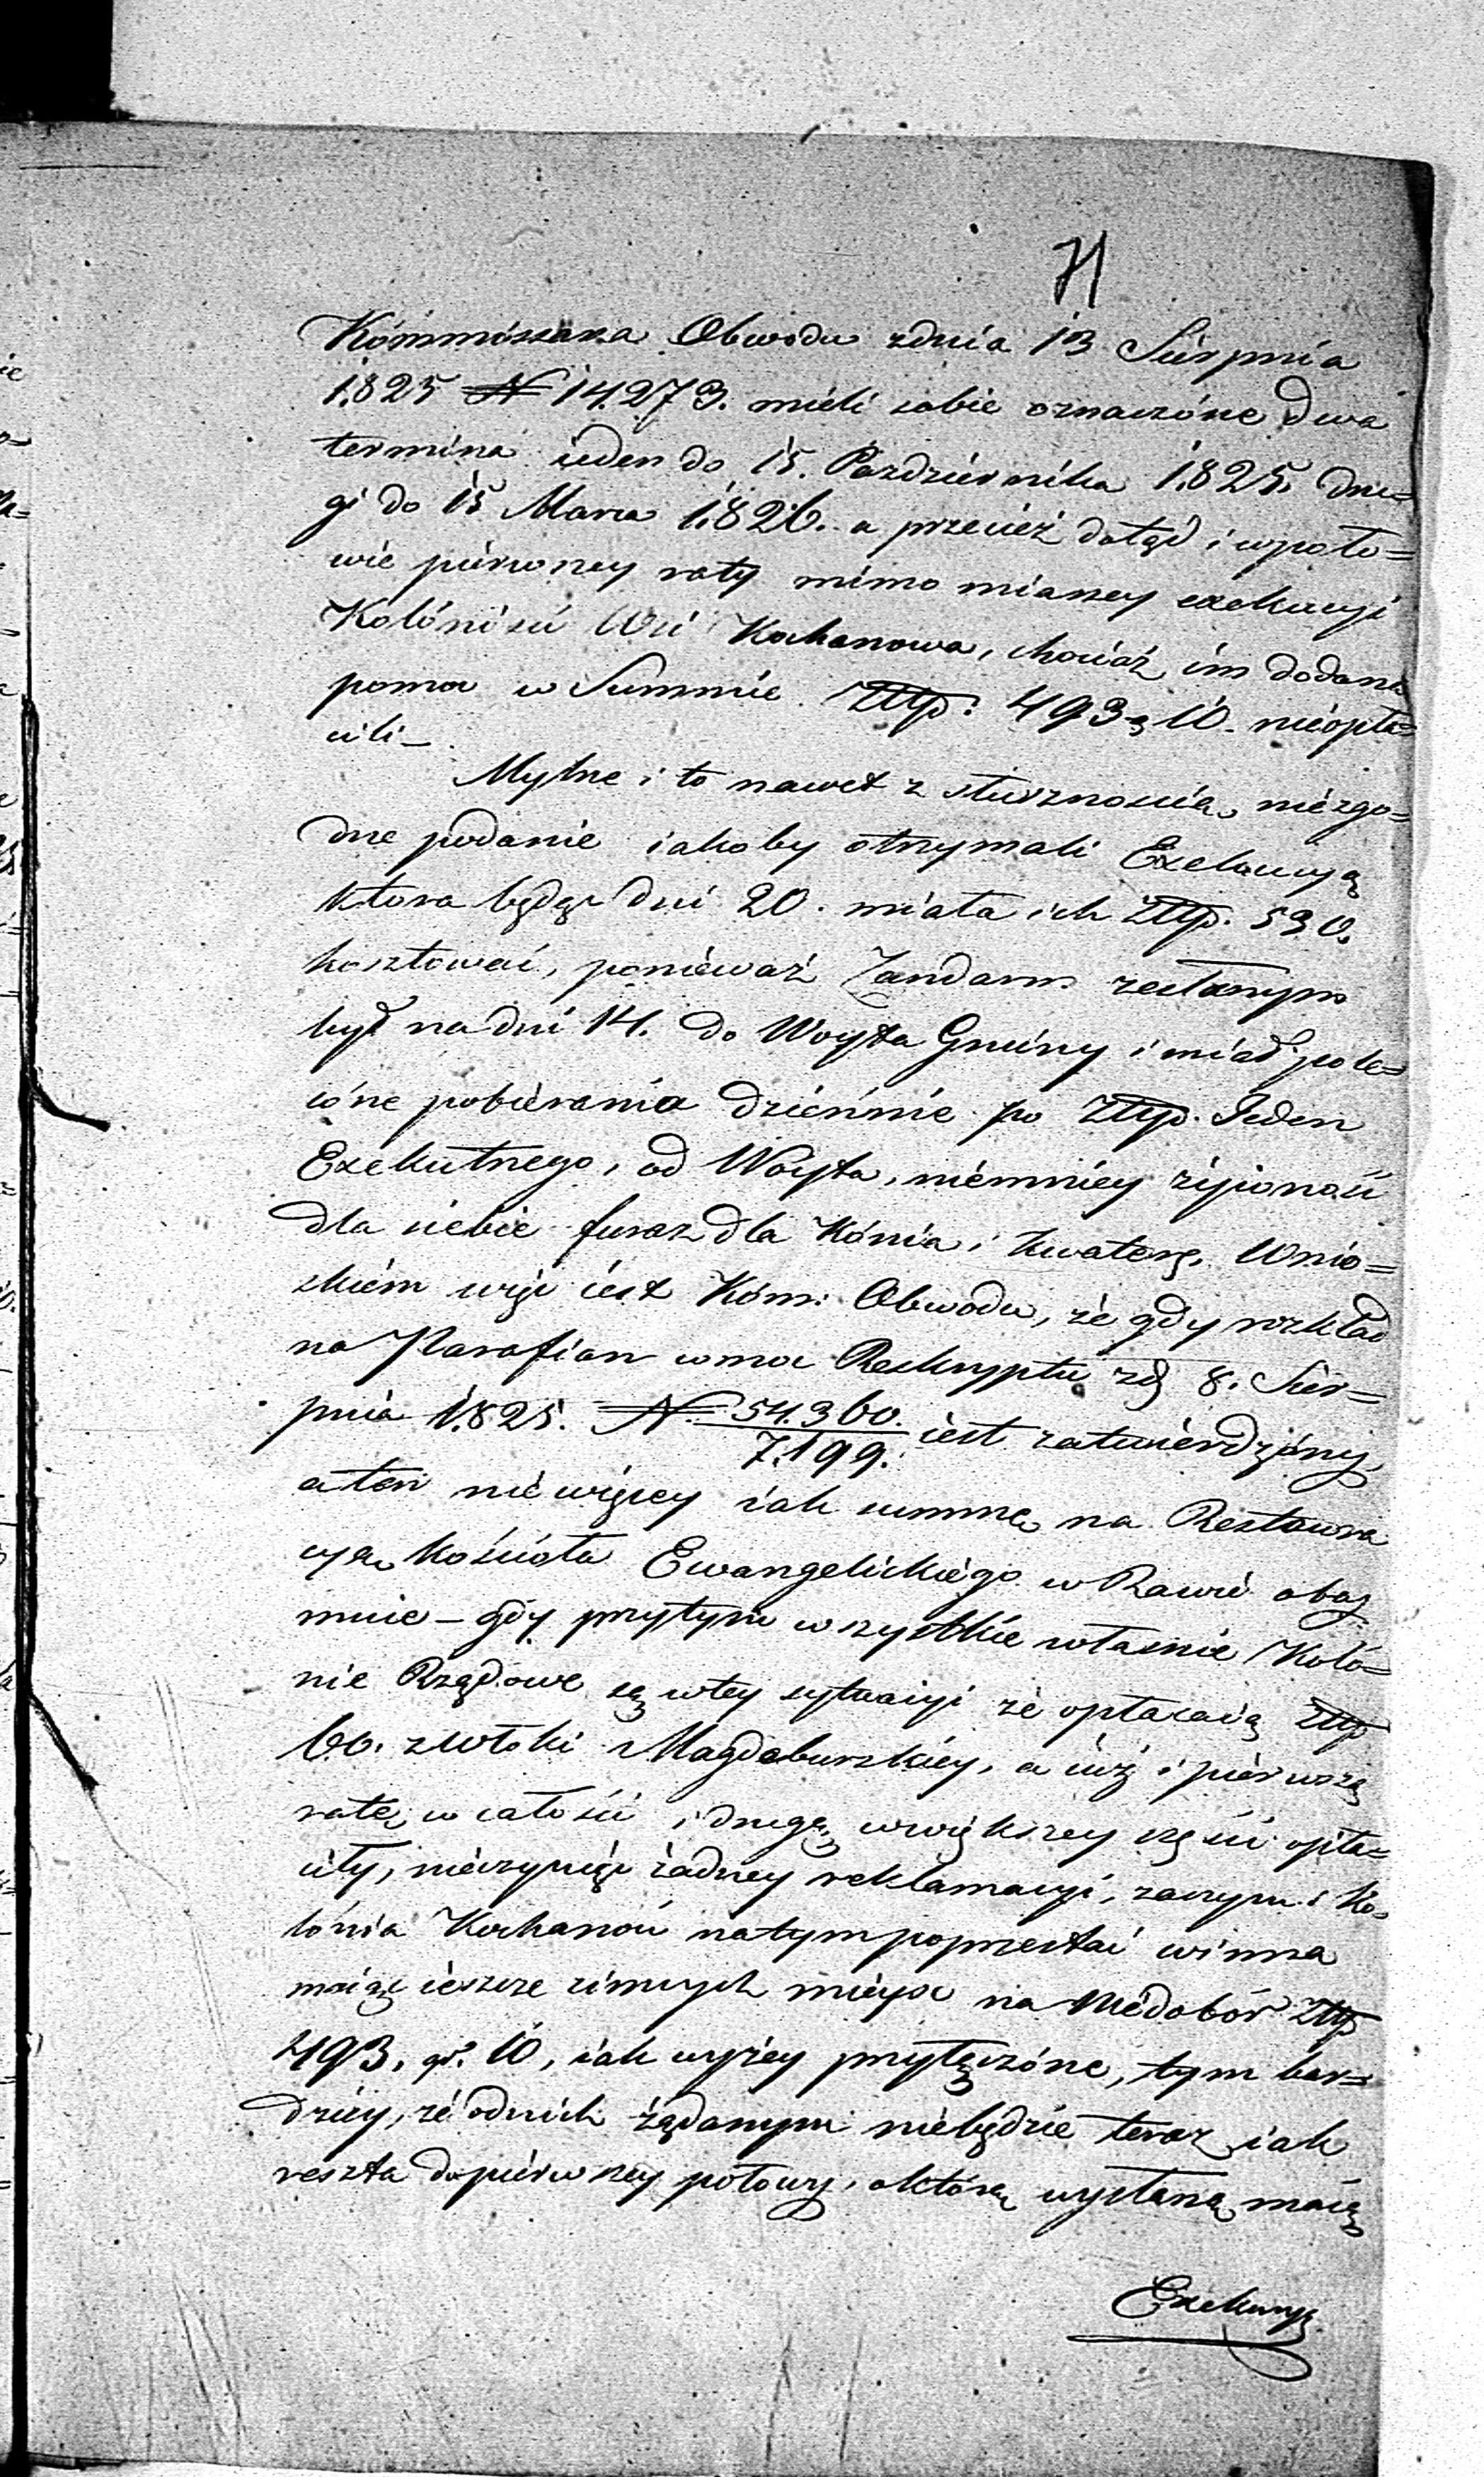 71
Kómmissarza Obwodu zdnia 13 Sierpnia
1825 N 14.273. mieli sobie oznaczóne dwa
termina ieden do 15. Pazdziernika 1825. dru=
gi do 15 Marca 1826. a przecież dotąd i wpoło=
wie pierwszey raty mimo mianey exekucyi
Kolóniści Wsi Kochanowa, chociaż im dodana
pomoc w Summie Złtp: 493 g 10. nieopła=
cili_
Mylne i to nawet z słusznością niezgo=
dne podanie iakoby otrzymali Exekucyą
ktora będąc dni 20. miała ich Złtp. 530.
kosztować, ponieważ Zandarm zesłanym
był na dni 14. do Woyta Gminy i miał pole=
cóne pobierania dziennie po Złtp. Jeden
Exekutnego, od Woyta, niemniey żywność
dla siebie furaz dla Kónia i kwaterę. Wnio=
skiem więc iest Kóm: Obwodu, że gdy rozkład
na Parafian wmoc Reskryptu zd 8. Sier=
pnia 1825. N 54.360./7.199. iest zatwierdzóny,
a ten niewięcey iak summę na Restaura
cyą kościoła Ewangelickiego w Rawie obey
muie – gdy przytym wszystkie własnie Koló=
nie Rządowe są wtey sytuacyi że opłacaią Złtp
60. zwłóki Magdeburskiey, a iuż i pierwszą
ratę w całości i drugą wwiększey części opła=
ciły, nieczyniąc żadney reklamacyi, zaczym i Ko=
lónia Kochanów natym poprzestać winna
maiąc ieszcze zinnych mieysc na Niedobór Złtp
493. gr. 10, iak wyżey przyłączóne, tym bar=
dziey, że odnich żądanym niebędzie teraz iak
reszta dopierwszey połowy, októrą wysłaną maią
Exekucyą